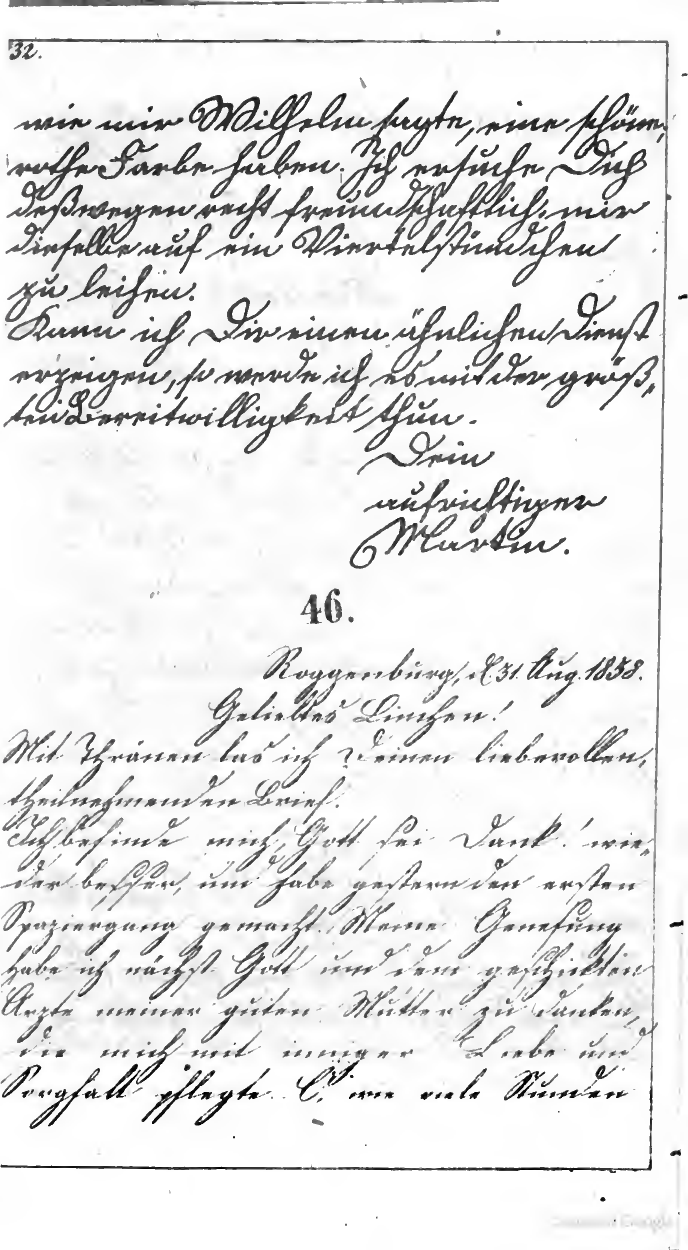 32.
wie mir Wilhelm sagte, eine schöne,
rothe Farbe haben. Ich ersuche Dich
deßwegen recht freundschaftlich, mir
dieselbe auf ein Viertelstündchen
zu leihen.
Kann ich Dir einen ähnlichen Dienst
erzeigen, so werde ich es mit der größ-
ten Bereitwilligkeit thun.
Dein
aufrichtiger
Martin.
46.
Roggenburg, d. 31. Aug. 1858.
Geliebtes Linchen!
Mit Thränen las ich Deinen liebevollen,
theilnehmenden Brief.
Ich befinde mich, Gott sei Dank! wie-
der besser, und habe gestern den ersten
Spaziergang gemacht. Meine Genesung
habe ich nächst Gott und dem geschickten
Arzte meiner guten Mutter zu danken,
die mich mit inniger Liebe und
Sorgfalt pflegte. O, wie viele Stunden